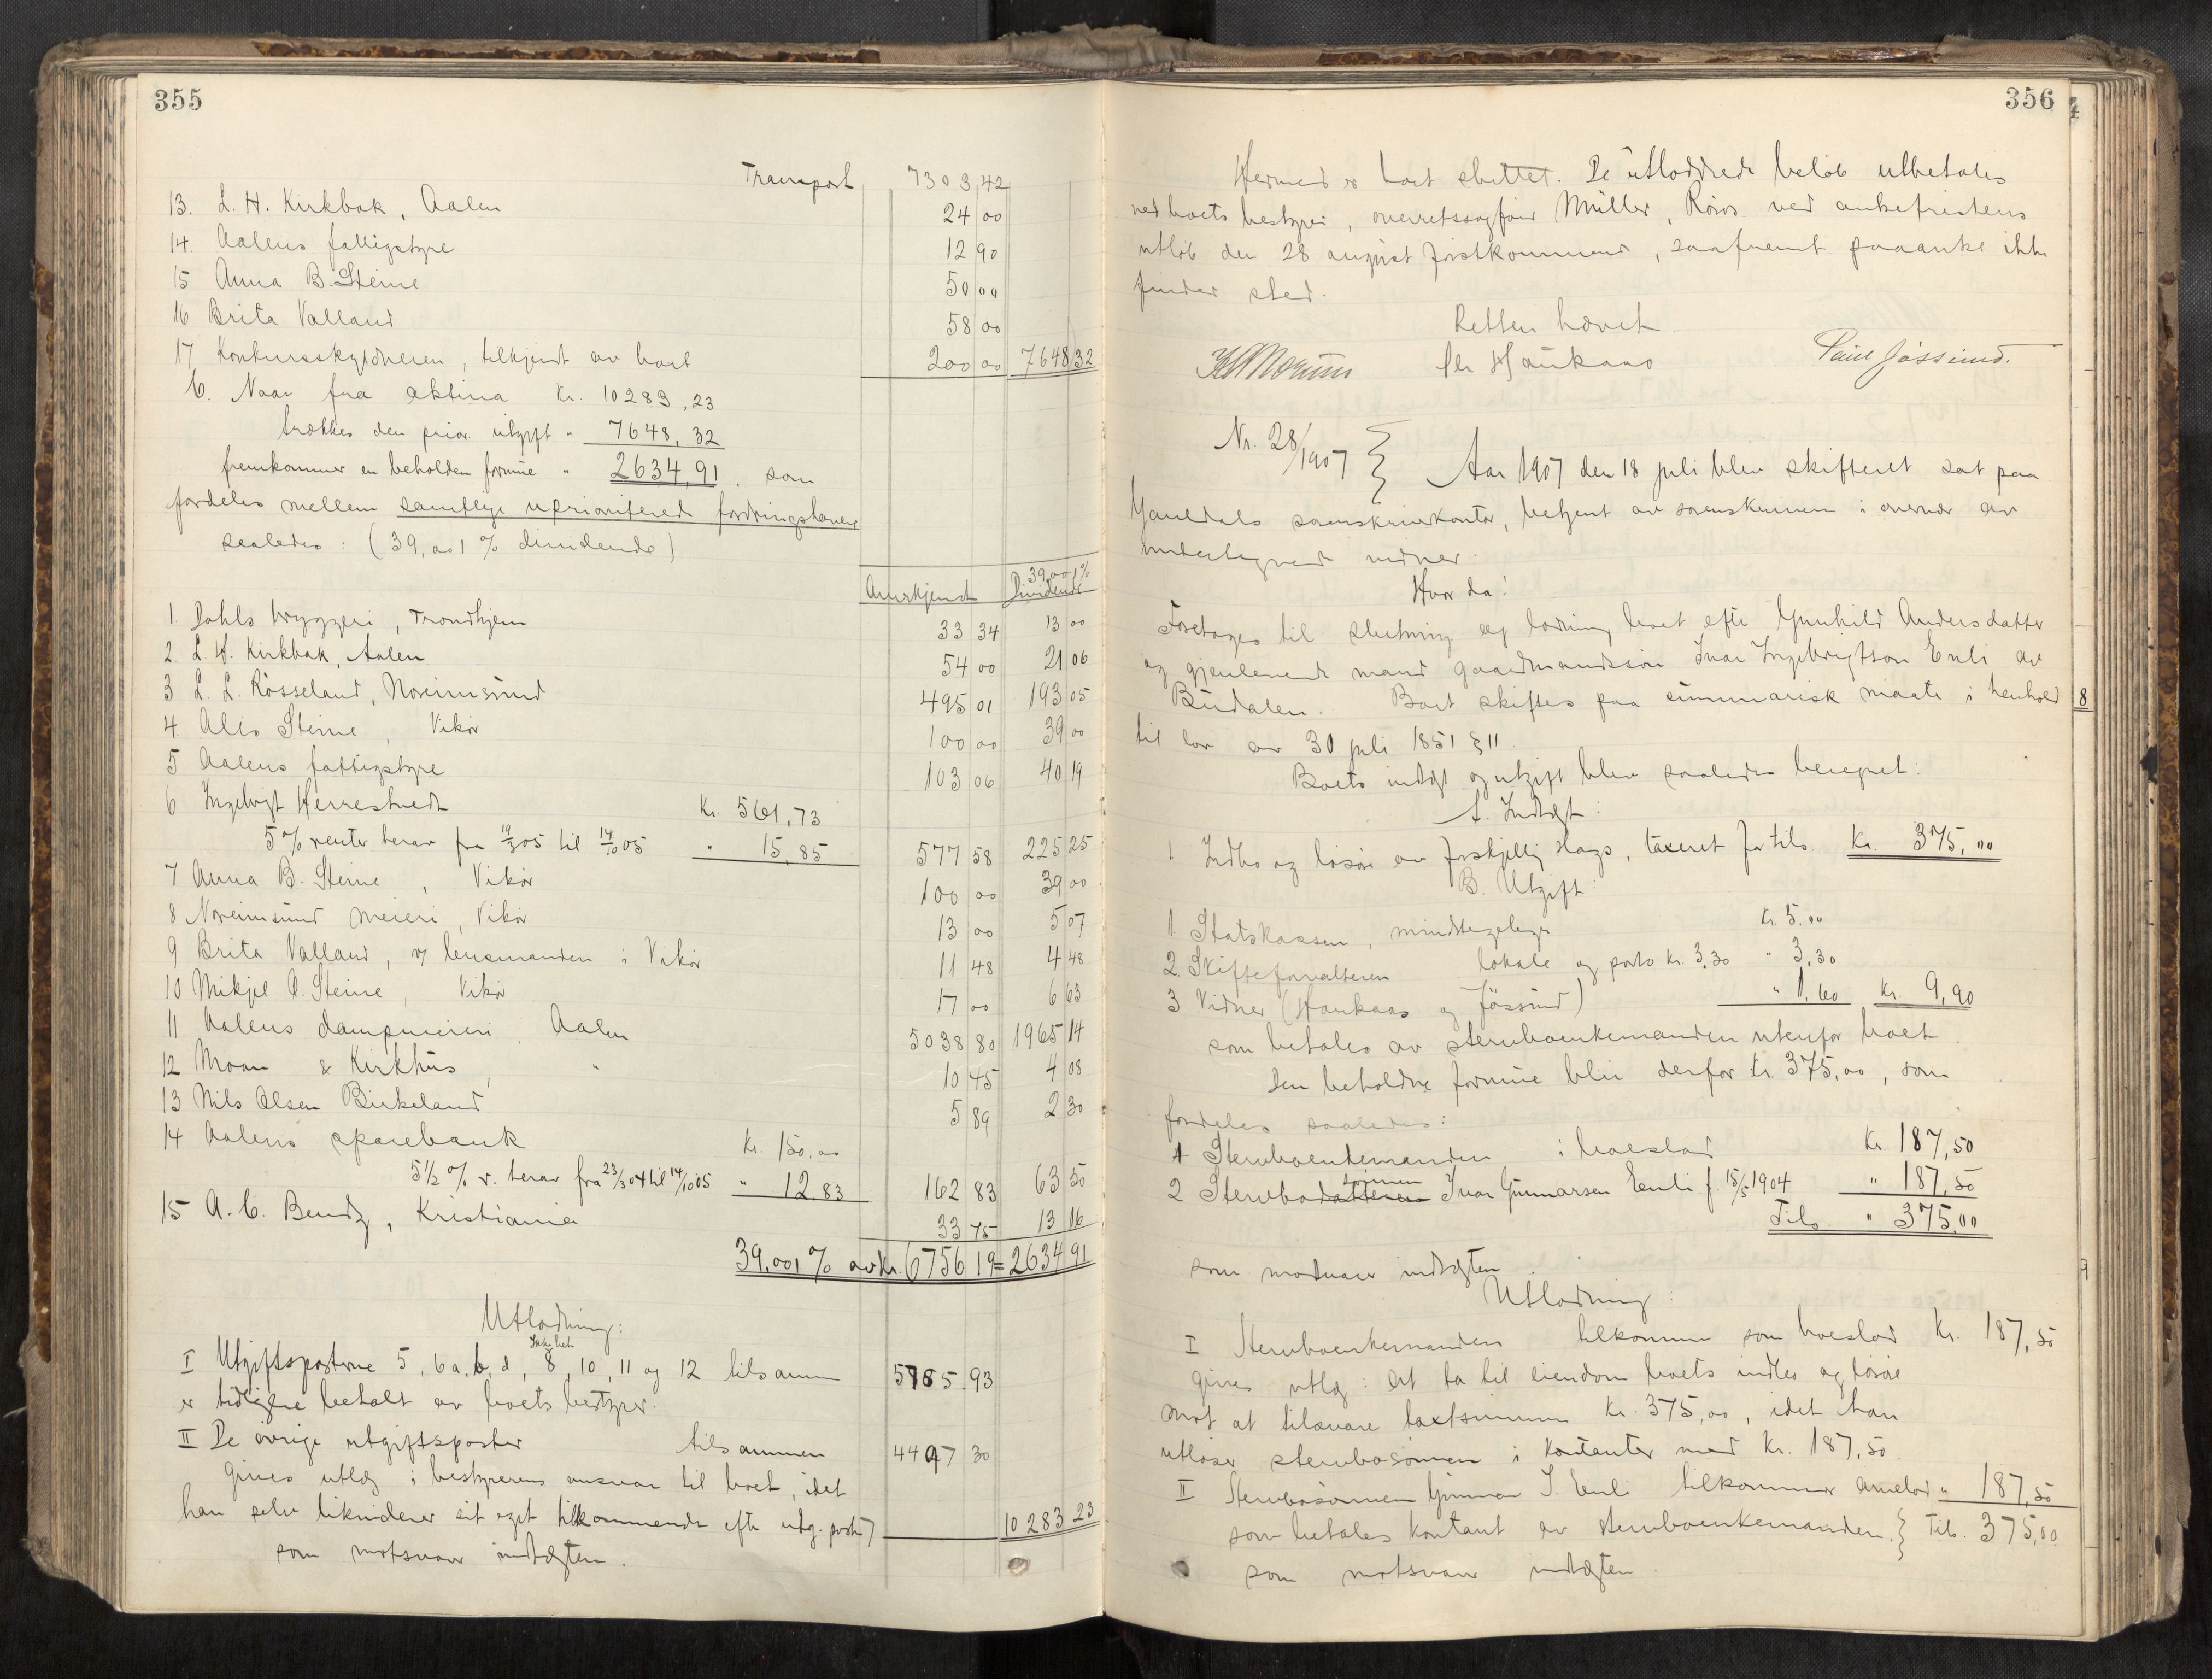 355
Transport 7303,42
13. L. H. Kirkbak, Aalen 24 00
14. Aalens fattigstyre 12 90
15 Anna B. Steine 50 00
16 Brita Valland 58 00
17 Konkursskyldneren, tilkjendt av boet 200 00 7648 32
6. Naar fra aktiva Kr. 10283,23
trækkes den prior. utgift " 7648,32
fremkommer en beholden formue " 2634,91. som
fordeles mellem samtlige uprioriterede fordringshavere
saaledes: (39,001 % dividende)
Anerkjendt 39,001 % Dividende
1. Dahls bryggeri, Trondhjem 33 34 13 00
2 L. H. Kirkbak, Aalen 54 00 21 06
3 L. L. Rösseland, Noreimsund 495 01 193 05
4. Alis Steine, Vikör 100 00 39 00
5 Aalens fattigstyre 103 06 40 19
6 Ingebrigt Herrestvedt Kr. 561,73
5 % renter herav fra 19/3 05 til 14/10 05 " 15,85 577 58 225 25
7 Anna B. Steine, Vikör 100 00 39 00
8 Noreimsund meieri, Vikör 13 00 5 07
9 Brita Valland, v/ lensmanden i Vikör 11 48 4 48
10 Mikjel O. Steine, Vikör 17 00 6 63
11 Aalens dampmeieri, Aalen 5038 80 1965 14
12 Moan & Kirkhus, " 10 45 4 08
13 Nils Olsen Birkeland 5 89 2 30
14 Aalens sparebank Kr. 150,00
5½ % r. herav fra 23/3 04 til 14/10 05 " 12 83 162 83 63 50
15 A. C. Bendz, Kristiania 33 75 13 16
39,001 % av Kr. 6756 19 = 2634 91
Utlodning:
I Utgiftsposterne 5, 6 a, b, d, 8, 10, 11 og 12 tilsamm 5785.93
er tidligere betalt av boets bestyrer.
II De övrige utgiftsposter tilsammen 4497 30
gives utlæg i bestyrerens ansvar til boet, idet
han selv likviderer sit eget tilkommende efter utg. post 7 10283 23
som motsvarer indtægten.
356
Hermed er boet sluttet. De utloddede belöb utbetales
ved boets bestyrer, overretssagförer Müller, Röros ved ankefristens
utlöb den 28 august förstkommende, saafremt paaanke ikke
finder sted.
Retten hævet
Ole Haukaas Paul Jössund.
Nr. 28/1907 } Aar 1907 den 18 juli blev skifteret sat paa
Gauldals sorenskriverkontor, betjent av sorenskriveren i overvær av
undertegnede vidner.
Hvor da:
Foretages til slutning og lodning boet efter Gunhild Andersdatter
og gjenlevende mand gaardmandssön Ivar Ingebrigtson Enli av
Budalen. Boet skiftes paa summarisk maate i henhold 8
til lov av 30 juli 1851 § 11.
Boets indtægt og utgift blev saaledes beregnet:
A. Indtægt:
1 Indbo og lösöre av forskjellig slags, taxeret for tils. Kr. 375,00
B. Utgift:
1. Statskassen, mindstegebyr Kr. 5.00
2. Skifteforvalteren lokale og porto kr. 3,30 " 3,30
3 Vidner (Haukaas og Jössund) " 1,60 Kr. 9,90
som betales av stervboenkemanden utenfor boet.
Den beholdne formue blir derfor Kr. 375,00, som
fordeles saaledes:
1 Stervboenkemanden i boeslod Kr. 187,50
2 Stervbodatteren sönnen Ivar Gunnarsen Enli f. 15/5 1904 " 187,50
Tils " 375,00
som motsvarer indtægten. 9
Utlodning:
I Stervboenkemanden tilkommer som boeslod Kr. 187,50
gives utlæg: At ta til eiendom boets indbo og lösöre
mot at tilsvare taxtsummen Kr. 375,00, idet han
utlöser stervbosönnen i kontanter med Kr. 187,50.
II Stervbosönnen Gunnar I. Enli tilkommer arvelod " 187,50
som betales kontant av stervboenkemanden. } Tils. 375,00
som motsvarer indtægten.